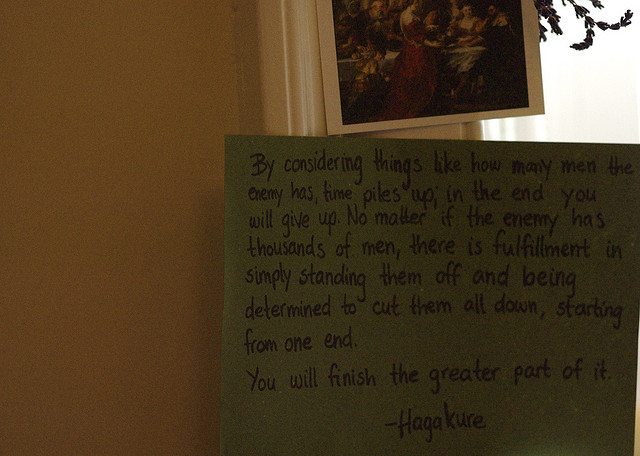 By considering things like how many men the
enemy has, time piles up; in the end you
will give up. No matter if the enemy has
thousands of men, there is fulfillment in
simply standing them off and being
determined to cut them all down, starting
from one end.
You will finish the greater part of it.
-Hagakure